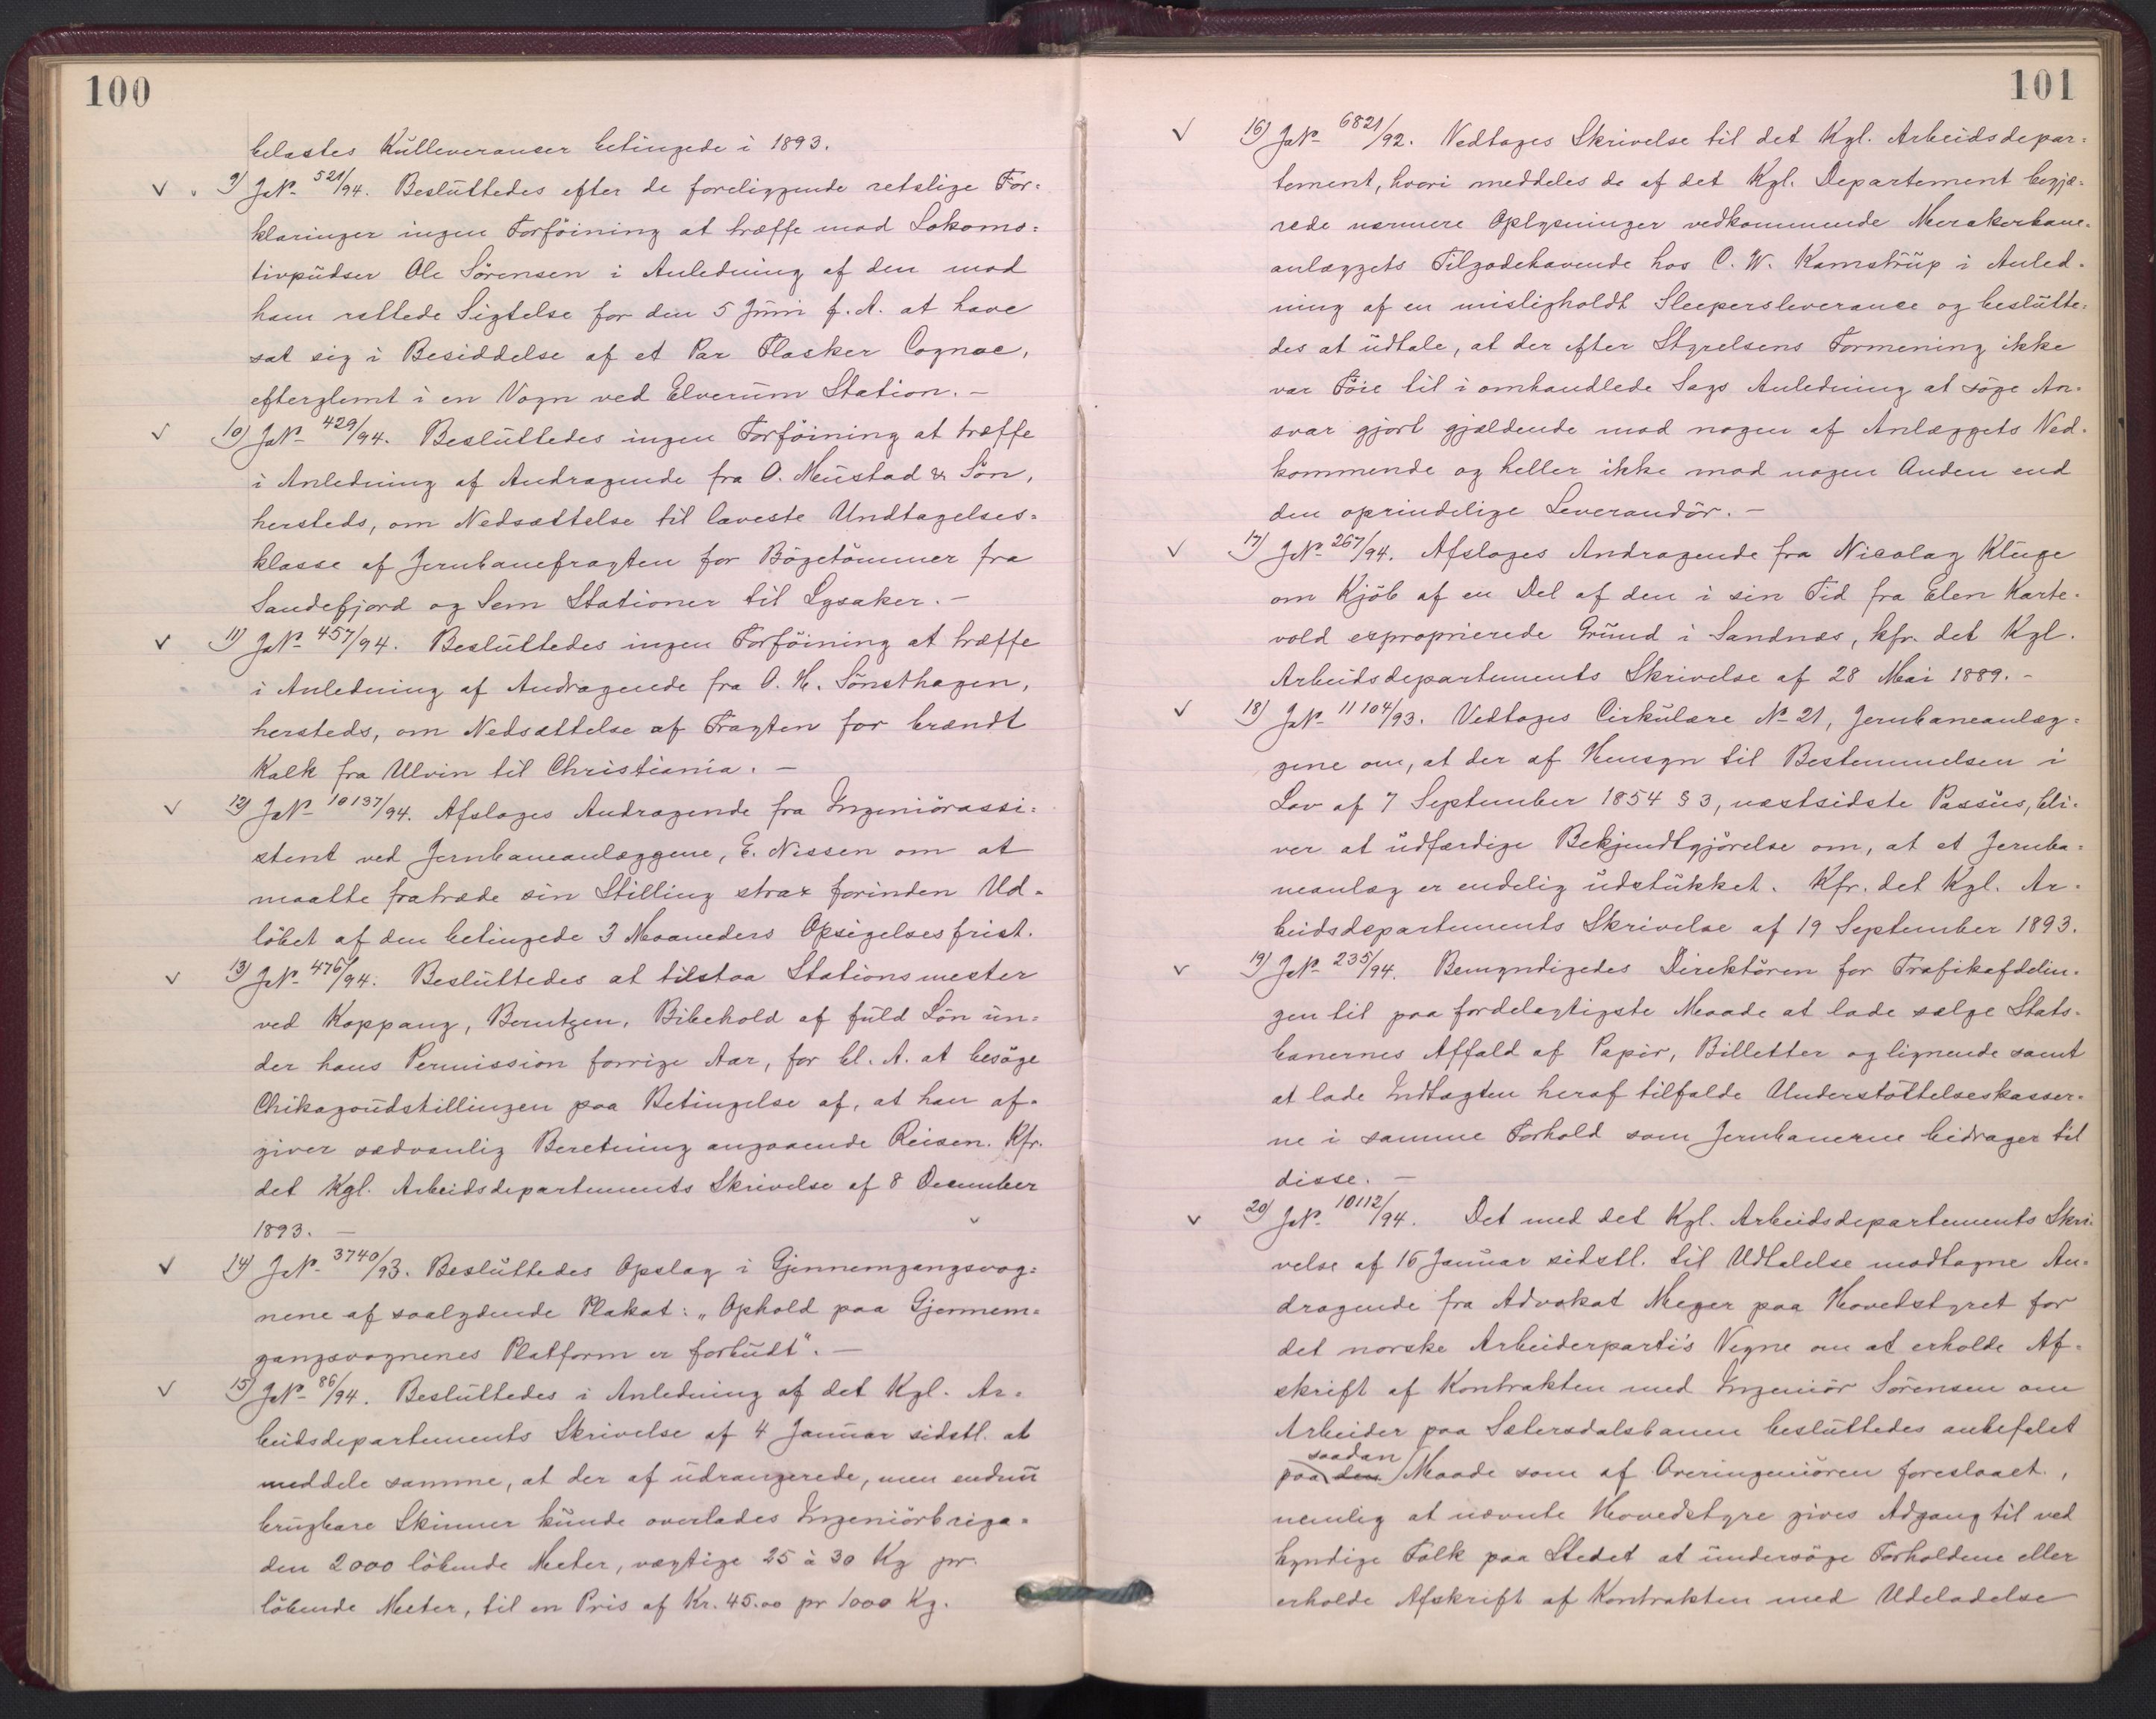 100
belastes Kulleveranser betingede i 1893.
9) JNo 521/94. Besluttedes efter de foreliggende retslige For=
klaringer ingen Forföining at træffe mod Lokomo=
tivpudser Ole Sörensen i Anledning af den mod
ham rettede Sigtelse for den 5 Juni f. A. at have
sat sig i Besiddelse af et Par Flasker Cognac,
efterglemt i en Vogn ved Elverum Station. -
10) JNo 429/94. Besluttedes ingen Forföining at træffe
i Anledning af Andragende fra O. Mustad & Sön,
hersteds, om Nedsættelse til laveste Undtagelses=
klasse af Jernbanefragten for Bögetömmer fra
Sandefjord og Sem Stationer til Lysaker. -
11) JNo 457/94. Besluttedes ingen Forföining at træffe
i Anledning af Andragende fra O. H. Sönsthagen,
hersteds, om Nedsættelse af Fragten for brændt
Kalk fra Ulvin til Christiania. -
12) JNo 10137/94. Afsloges Andragende fra Ingeniörassi=
stent ved Jernbaneanlæggene, E. Nissen om at
maatte fratræde sin Stilling strax forinden Ud=
löbet af den betingede 3 Maaneders Opsigelsesfrist.
13) JNo 476/94. Besluttedes at tilstaa Stationsmester
ved Koppang, Berntzen, Bibehold af fuld Lön un=
der hans Permission forrige Aar, for bl. A. at besöge
Chikagoudstillingen paa Betingelse af, at han af=
giver sædvanlig Beretning angaaende Reisen. Kfr.
det Kgl. Arbeidsdepartements Skrivelse af 8 December
1893. -
14) JNo 3740/93. Besluttedes Opslag i Gjennemgangsvog=
nene af saalydende Plakat: „Ophold paa Gjennem=
gangsvognenes Platform er forbudt". -
15) JNo 86/94. Besluttedes i Anledning af det Kgl. Ar=
beidsdepartements Skrivelse af 4 Januar sidstl. at
meddele samme, at der af udrangerede, men endnu
brugbare Skinner kunde overlades Ingeniörbriga=
den 2000 löbende Meter, vægtige 25 à 30 Kg pr.
löbende Meter, til en Pris af Kr. 45.00 pr 1000 Kg.
101
16) JNo 6821/92. Vedtoges Skrivelse til det Kgl. Arbeidsdepar=
tement, hvori meddeles de af det Kgl. Departement begjæ=
rede nærmere Oplysninger vedkommende Merakerbane=
anlæggets Tilgodehavende hos C. W. Kamstrup i Anled=
ning af en misligholdt Sleepersleverance og beslutte=
des at udtale, at der efter Styrelsens Formening ikke
var Föie til i omhandlede Sags Anledning at söge An=
svar gjort gjældende mod nogen af Anlæggets Ved=
kommende og heller ikke mod nogen Anden end
den oprindelige Leverandör. -
17) JNo 267/94. Afsloges Andragende fra Nicolay Kluge
om Kjöb af en Del af den i sin Tid fra Elen Karte=
vold exproprierede Grund i Sandnæs, kfr. det Kgl.
Arbeidsdepartements Skrivelse af 28 Mai 1889. -
18) JNo 11104/93. Vedtoges Cirkulære No 21, Jernbaneanlæg=
gene om, at der af Hensyn til Bestemmelsen i
Lov af 7 September 1854 § 3, næstsidste Passus, bli=
ver at udfærdige Bekjendtgjörelse om, at et Jernba=
neanlæg er endelig udstukket. Kfr. det Kgl. Ar=
beidsdepartements Skrivelse af 19 September 1893.
19) JNo 235/94. Bemyndigedes Direktören for Trafikafdelin=
gen til paa fordelagtigste Maade at lade sælge Stats=
banernes Affald af Papir, Billetter og lignende samt
at lade Indtægten heraf tilfalde Understöttelseskasser=
ne i samme Forhold som Jernbanerne bidrager til
disse. -
20) JNo 10112/94. Det med det Kgl. Arbeidsdepartements Skri=
velse af 16 Januar sidstl. til Udtalelse modtagne An=
dragende fra Advokat Meyer paa Hovedstyret for
det norske Arbeiderparti's Vegne om at erholde Af=
skrift af Kontrakten med Ingeniör Sörensen om
Arbeider paa Sætersdalsbanen besluttedes anbefalet
paa den saadan Maade som af Overingeniören foreslaaet,
nemlig at nævnte Hovedstyre gives Adgang til ved
kyndige Folk paa Stedet at undersöge Forholdene eller
erholde Afskrift af Kontrakten med Udeladelse